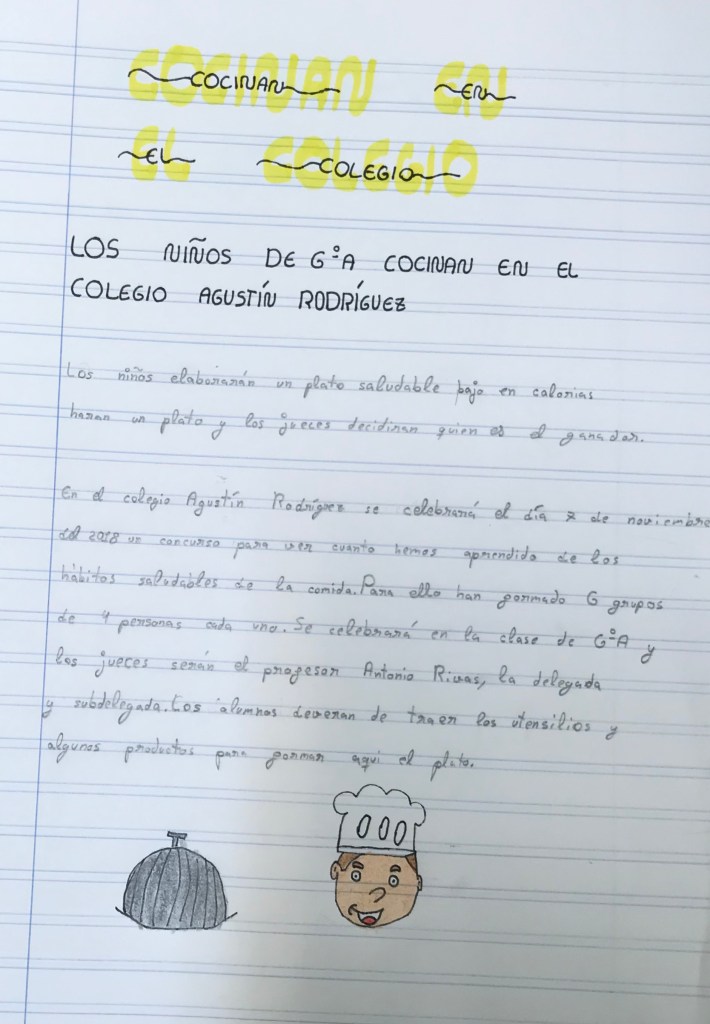 COCINAN EN
EL COLEGIO
LOS NIÑOS DE 6ºA COCINAN EN EL
COLEGIO AGUSTÍN RODRÍGUEZ
Los niños elaborarán un plato saludable bajo en calorias
haran un plato y los jueces decidiran quien es el ganador.
En el colegio Agustín Rodríguez se celebrará el día 7 de noviembre
del 2018 un concurso para ver cuanto hemos aprendido de los
hábitos saludables de la comida. Para ello han formado 6 grupos
de 4 personas cada uno. Se celebrará en la clase de 6ºA y
los jueces serán el profesor Antonio Rivas, la delegada
y subdelegada. Los alumnos deveran de traer los utensilios y
algunos productos para formar aqui el plato.